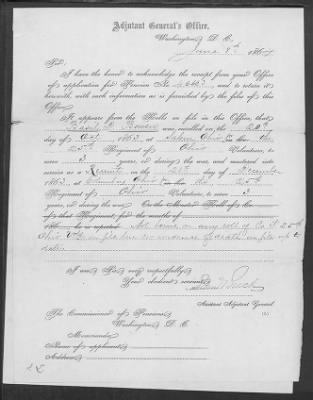 Adjutant General's Office,
Washington, D. C.
June 8th, 1864
Sir:
I have the honor to acknowledge the receipt from your Office
of application for Pension No. and to return it
herewith, with such information as is furnished by the files of this
Office.
It appears from the Rolls on file in this Office, that
was enrolled on the
day of Oct, 1863, at Ohio in Co.
25th Regiment of Ohio Volunteers, to
serve 3 years, or during the war, and mustered into
service as a Recruit on the day of
1863, at Columbus Ohio, in Co. 25th
Regiment of Ohio Volunteers, to serve 3
years, or during the war. On the Muster Roll of Co.
of that Regiment, for the months of
186 he is reported Not borne on any roll of Co. 25th
Ohio on file here no evidence of death on file up to
date.
I am, Sir, very respectfully,
Your obedient servant,
Assistant Adjutant General.
The Commissioner of Pensions,
Washington, D. C.
Memoranda:
Name of applicant,
Address,